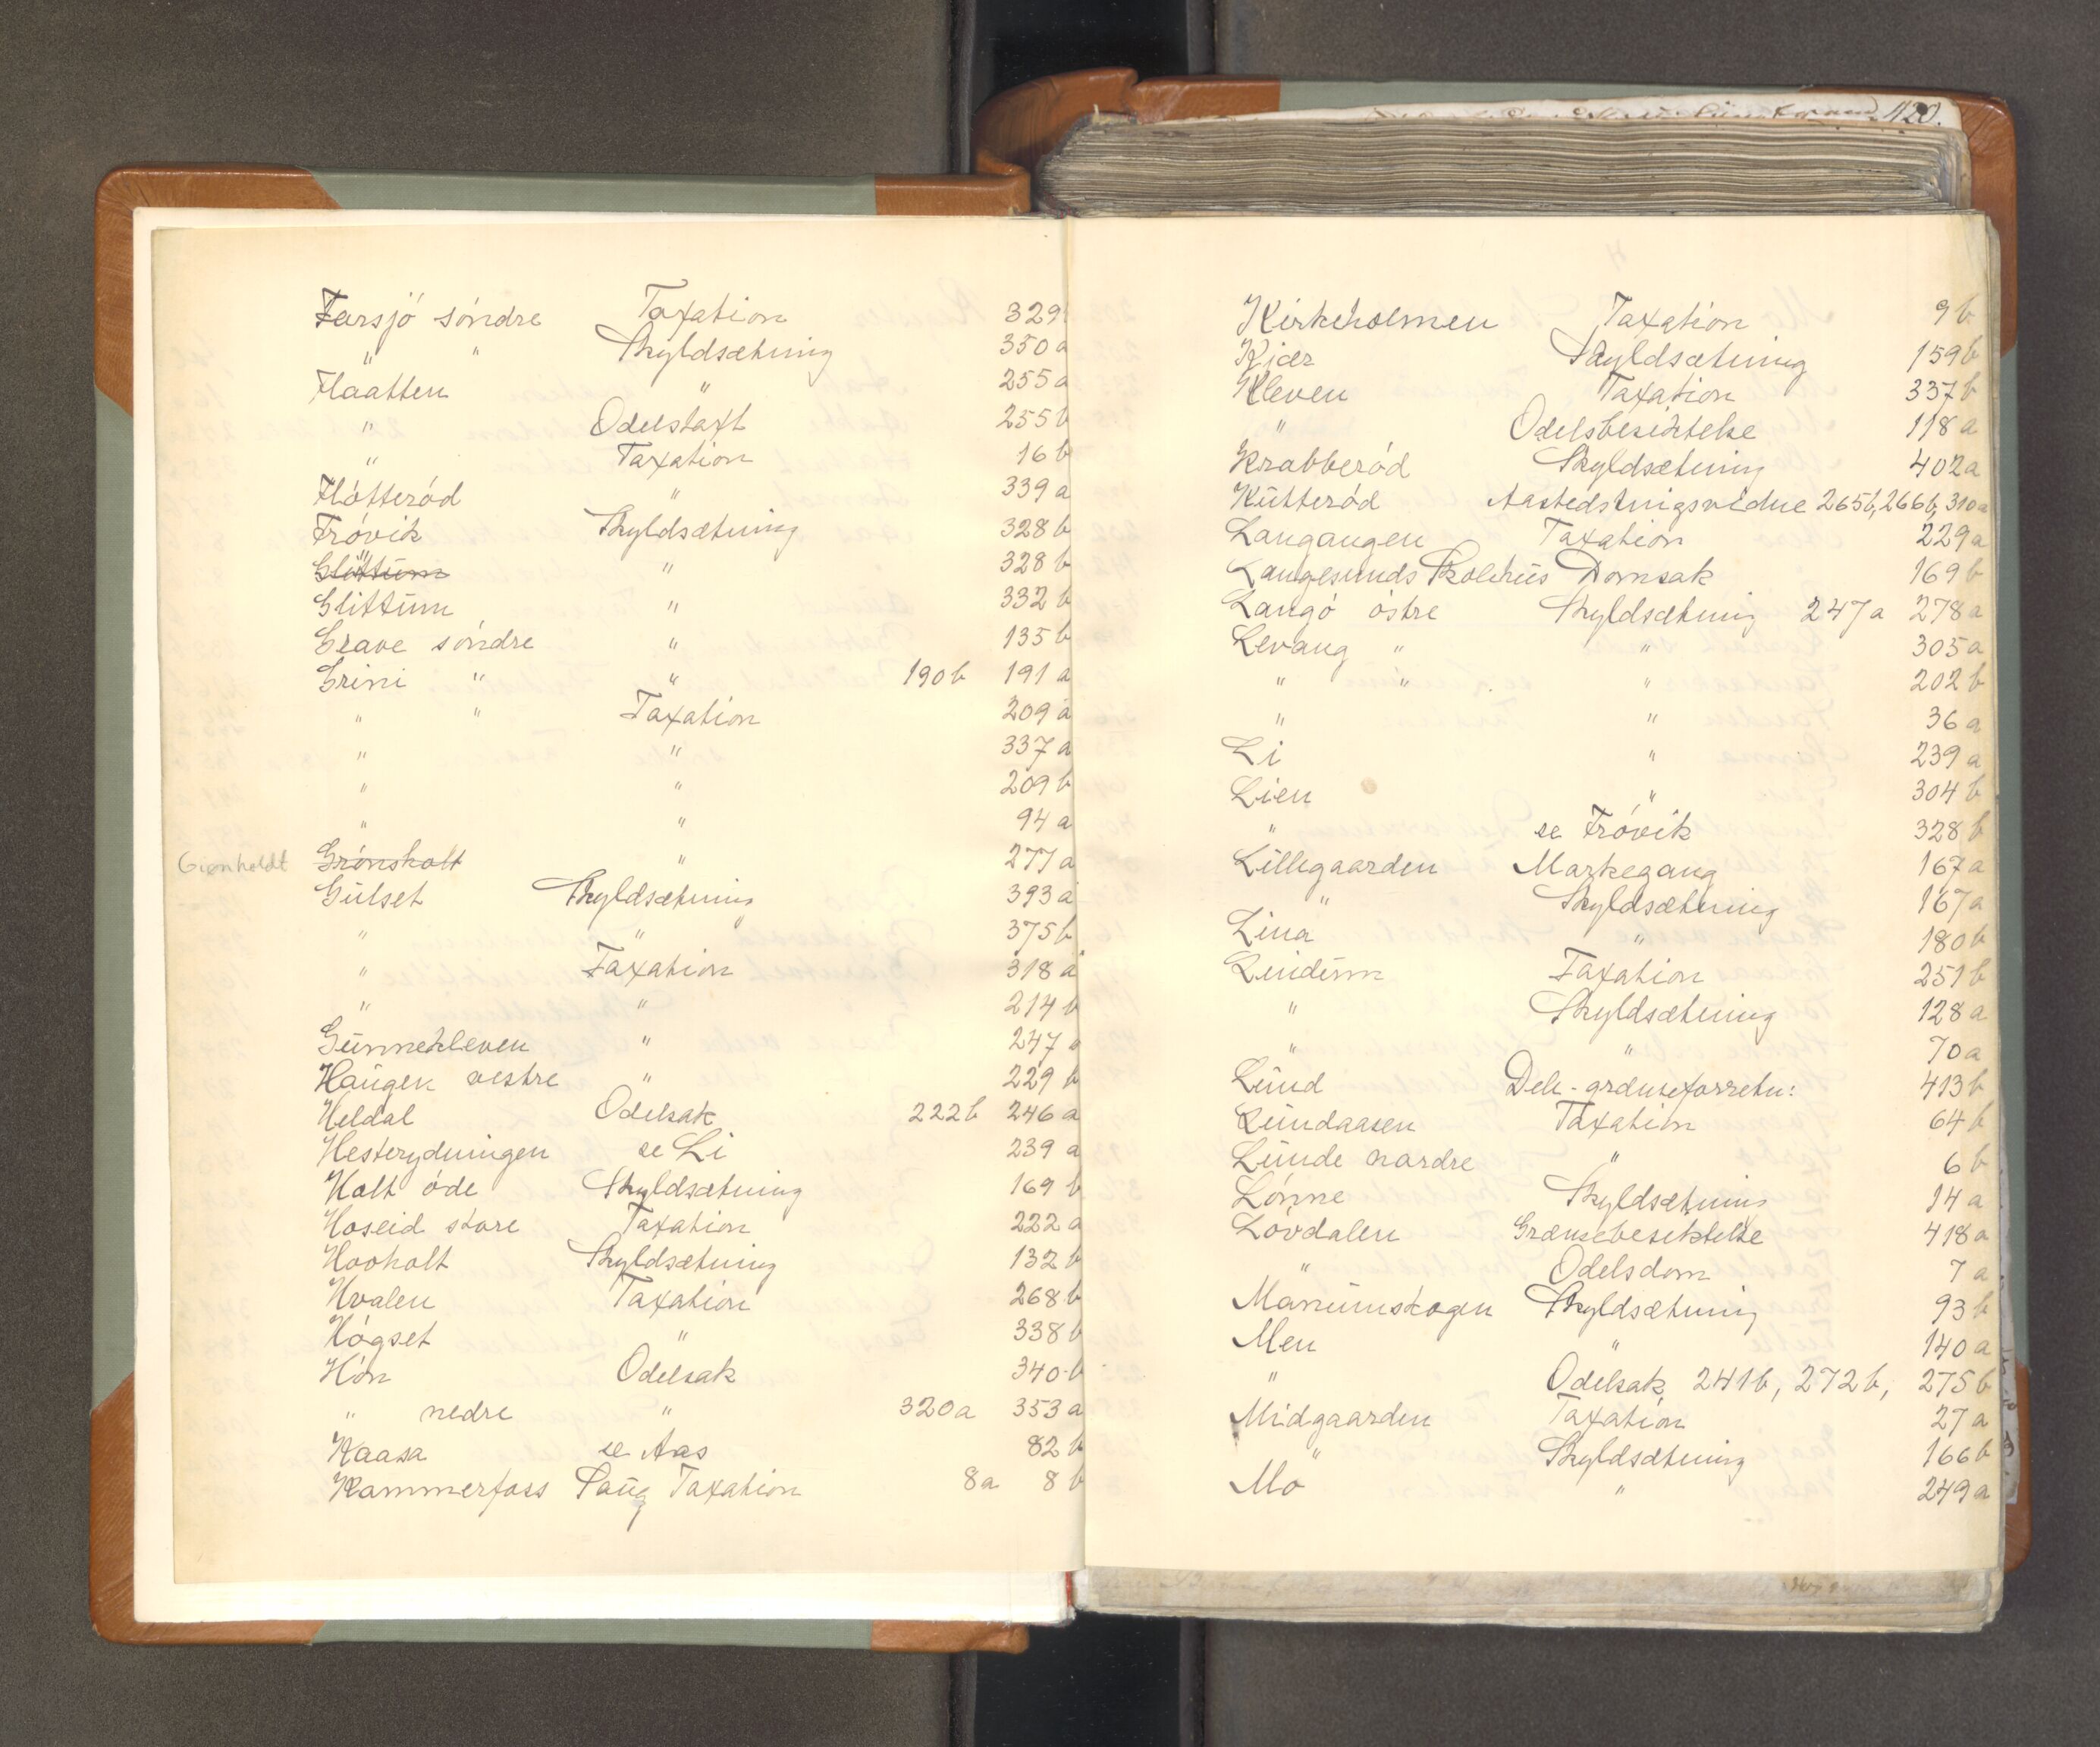 Farsjö söndre Taxation 329
" " Skyldsætning 350 a
Flaatten " 255 a
" Odelstaxt 255 b
" Taxation 16 b
Flötteröd " 339 a
Frövik Skyldsætning 328 b
Glittum " 328 b
Glittum " 332 b
Grave söndre " 135 b
Grini " " 190 b 191 a
" " Taxation 209 a
" " 337 a
" " 209 b
" " 94 a
Grönholdt Grönskolt " 277 a
Gulset Skyldsætning 393 a
" " 375 b
" Taxation 318 a
" " 214 b
Gunnekleven " 247
Haugen vestre " 229 b
Heldal Odelsak 222 b 246 a
Hesterydningen se Li 239 a
Holt öde Skyldsætning 169 b
Hoseid store Taxation 222 a
Hovholt Skyldsætning 132 b
Hvalen Taxation 268 b
Högset " 338 b
Hön Odelsak 340 b
" nedre " 320 a 353 a
Kaasa se Aas 82 b
Kammerfoss Saug Taxation 8 a 8 b
1120.
Kirkeholmen Taxation 9 b
Kjær Skyldsætning 159 b
Kleven Taxation 337 b
" Odelsbesiktelse 118 a
Krabberöd Skyldsætning 402 a
Kutteröd Aastedstingsvidne 265 b, 266 b, 310 a
Langangen Taxation 229 a
Langesunds Skolehus Domsak 169 b
Langö östre Skyldsætning 247 a 278 a
Levang " " 305 a
" " " 202 b
" " 36 a
Li " 239 a
Lien " 304 b
" se Frövik 328 b
Lillegaarden Markegang 167 a
" Skyldsætning 167 a
Lina " 180 b
Lindum Taxation 251 b
" Skyldsætning 128 a
" " 70 a
Lund Dele-grænseforretn: 413 b
Lundaasen Taxation 64 b
Lunde nordre " 6 b
Lönne Skyldsætning 14 a
Lövdalen Grænsebesiktelse 418 a
" Odelsdom 7 a
Mariumskogen Skyldsætning 93 b
Men " 140 a
" Odelsak 241 b, 272 b, 275 b
Midgaarden Taxation 27 a
" Skyldsætning 166 b
Mo " 249 a